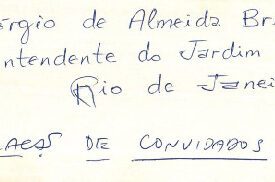 órgio de Almeida Br
ntendente do Jardim
Rio de Janei
LAEAS DE CONVIDADOS